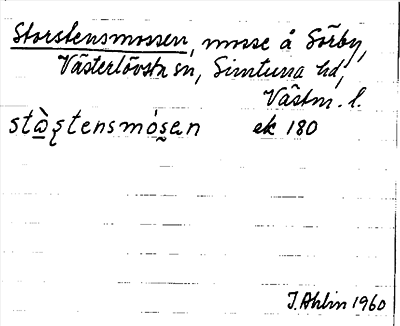 Storstensmossen, mosse å Sörby,
Västerlövsta sn, Simtuna hd,
Västm. l.
stὰ̱ʂtensmósa̱n ek 180
I. Ahlin 1960